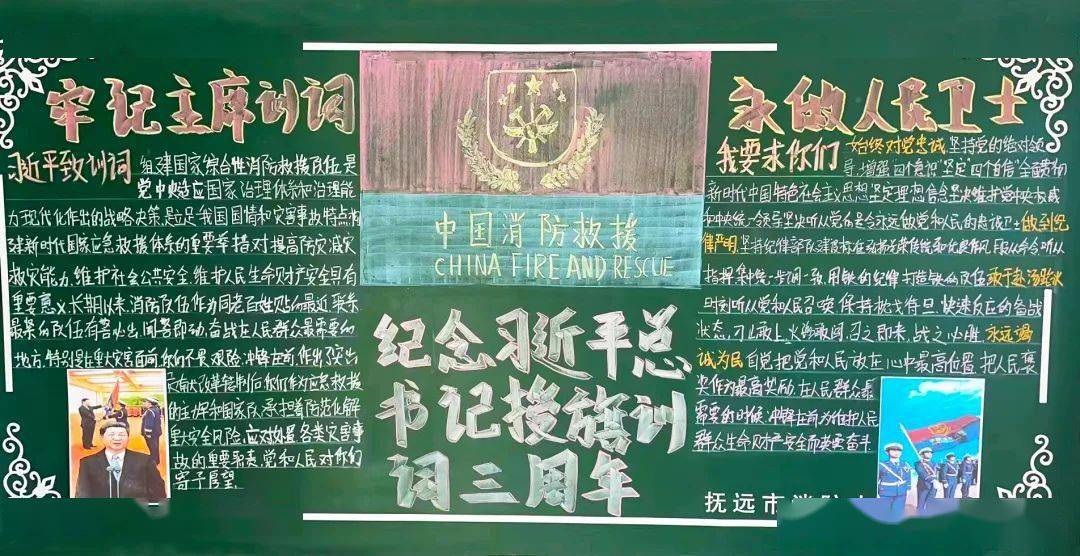 牢记主席训词
习近平致训词
组建国家综合性消防救援队伍,是
党中央适应国家治理体系和治理能
力现代化作出的战略决策,是立足我国国情和灾害事故特点,构
建新时代国家应急救援体系的重要举措,对提高防灾减灾
救灾能力、维护社会公共安全、维护人民生命财产安全具有
重要意义。长期以来,消防队伍作为同老百姓贴得最近、联系
最紧的队伍,有警必出、闻警即动,奋战在人民群众最需要的
地方,特别是在重大灾害面前,你们不畏艰险、冲锋在前,作出了突出
贡献。改革转制后,你们作为应急救援
的主力军和国家队,承担着防范化解
重大安全风险、应对处置各类灾害事
故的重要职责,党和人民对你们
寄予厚望。
中国消防救援
CHINA FIRE AND RESCUE
纪念习近平总
书记授旗训
词三周年
永做人民卫士
我要求你们
始终对党忠诚 坚持党的绝对领
导,增强“四个意识”坚定“四个自信”全面贯彻
新时代中国特色社会主义思想坚定理想信念坚决维护党中央权威
和中央统一领导坚决听从党的号令永远做党和人民的忠诚卫士 做到纪
律严明 坚持纪律部队建设标准弘扬光荣传统和优良作风服从命令、听从
指挥集中统一步调一致,用铁的纪律打造铁的队伍 敢于赴汤蹈火
时刻听从党和人民召唤,保持枕戈待旦、快速反应的备战
状态,刀山敢上、火海敢闯,召之即来、战之必胜 永远竭
诚为民 自觉把党和人民放在心中最高位置,把人民褒
奖作为最高奖励,在人民群众最
需要的时候,冲锋在前,为维护人民
群众生命财产安全而英勇奋斗
抚远市消防